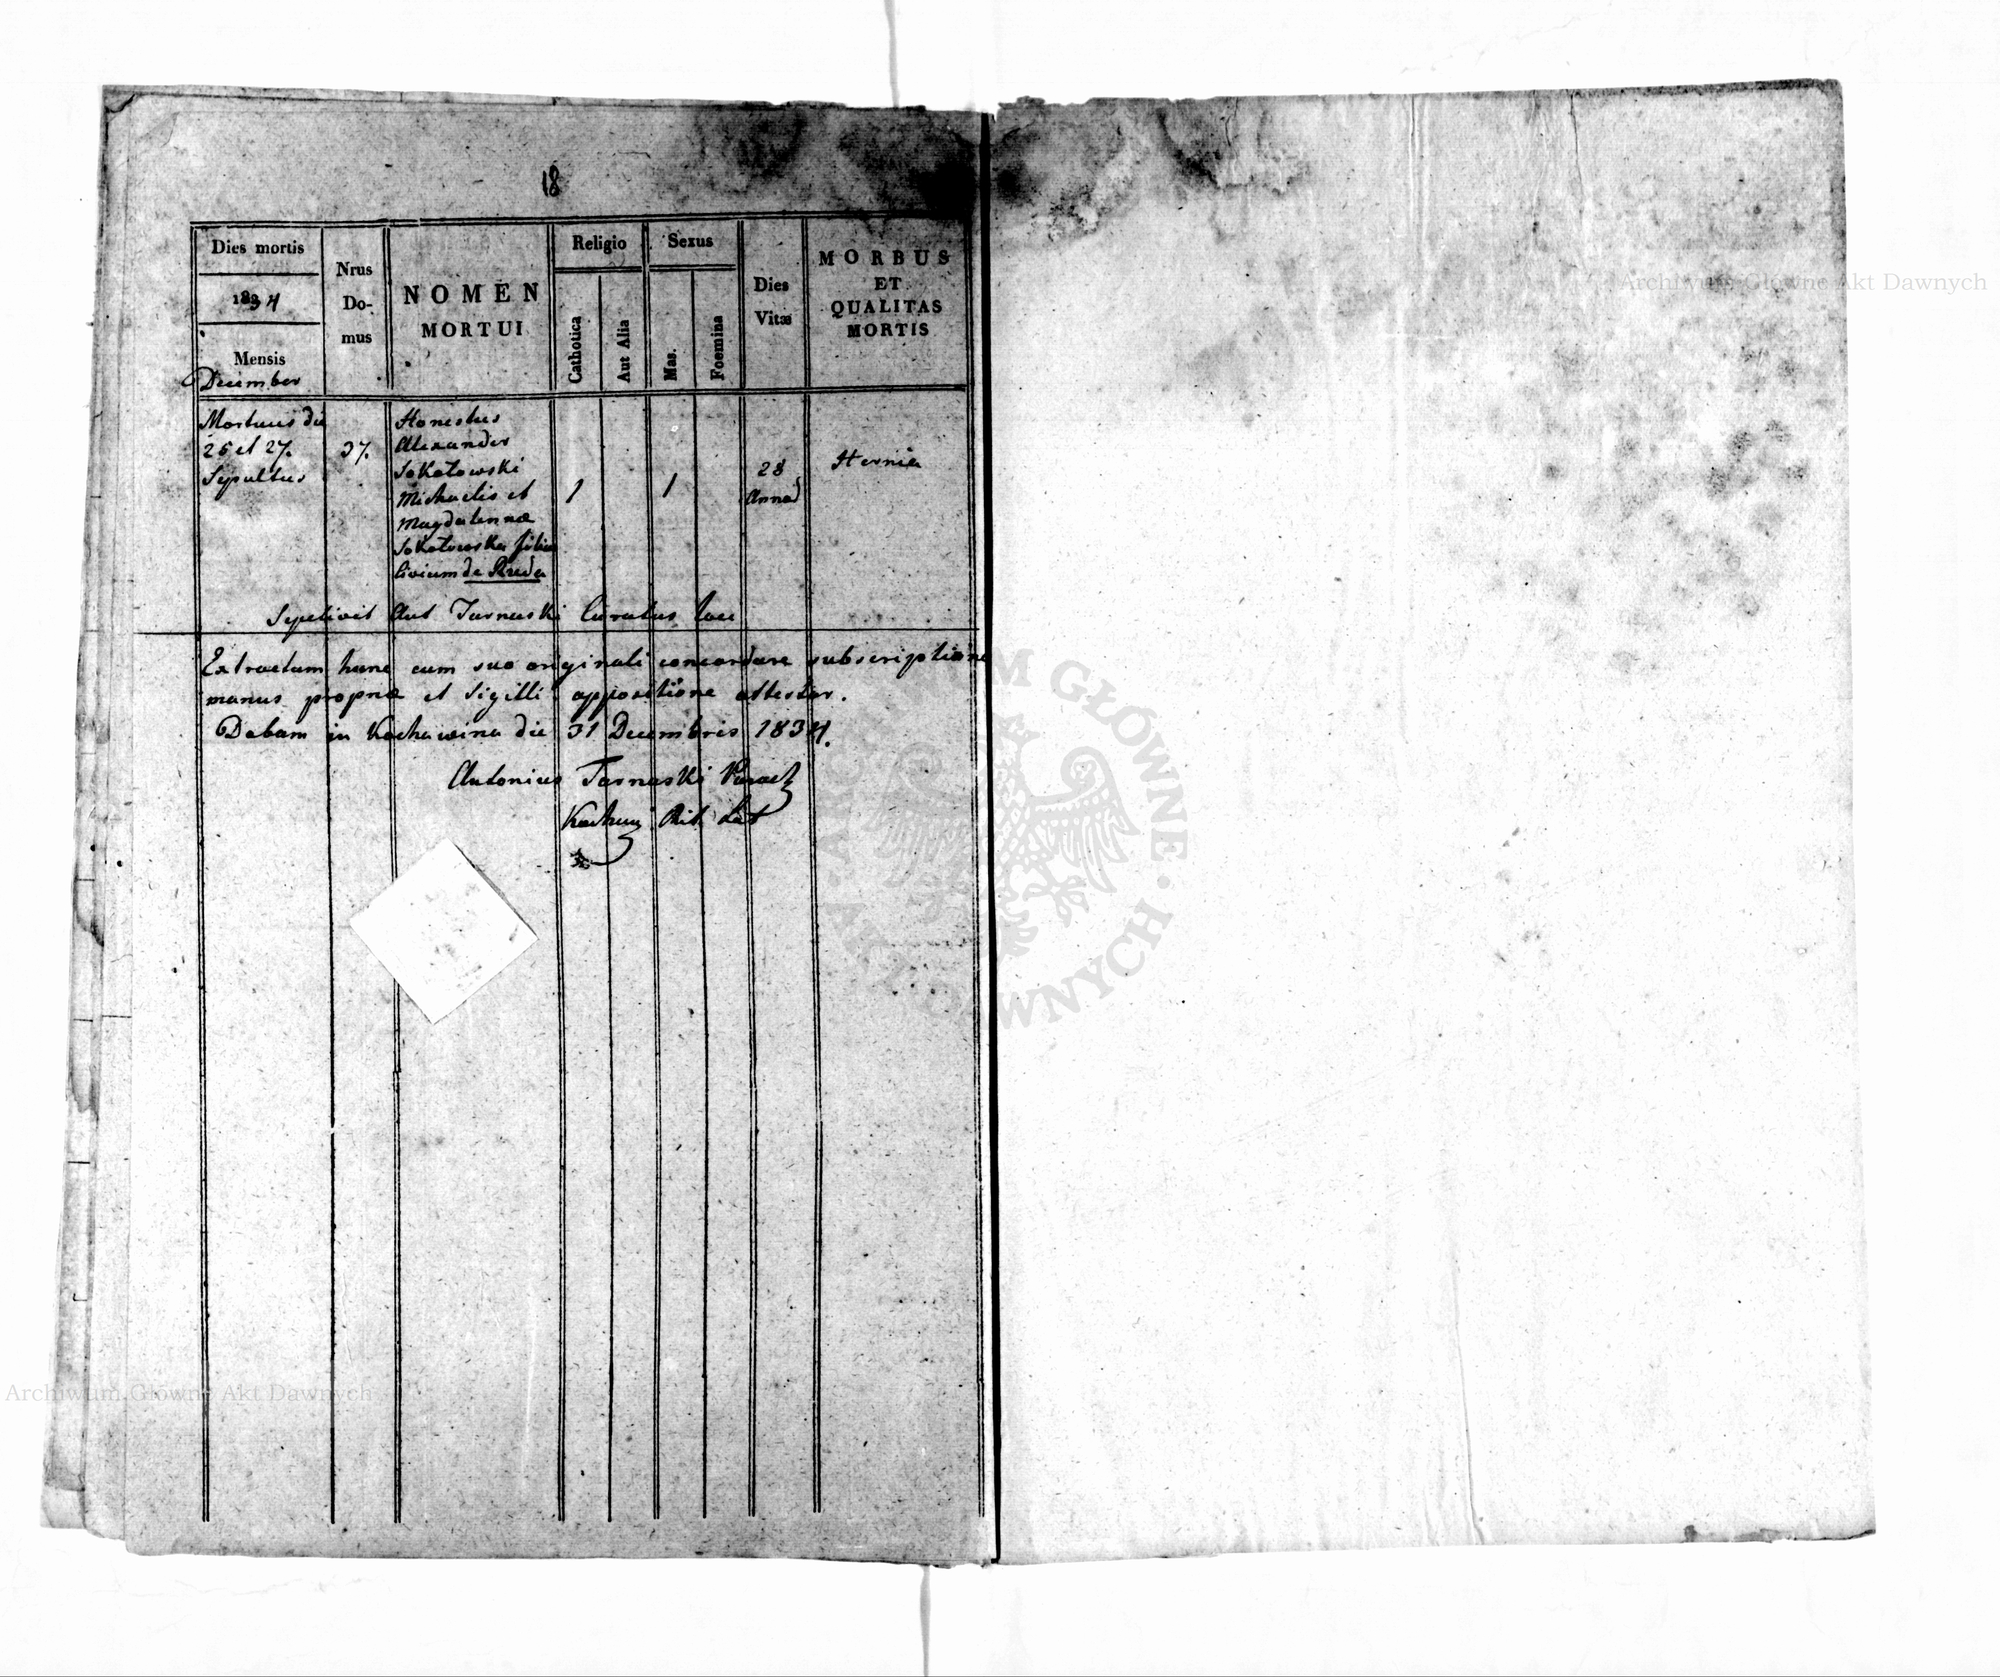 18
Dies mortis
1834
Mensis
December
Nrus
Do-
mus
NOMEN
MORTUI
Religio
Catholica
Aut Alia
Sexus
Mas.
Foemina
Dies
Vitæ
MORBUS
ET
QUALITAS
MORTIS
Mortuus die
25 et 27.
Sepultus
37.
Honestus
Alexander
Sokołowski
Michaelis et
Magdalennæ
Sokołowska filius
Civium de Ruda
1
1
28
Annor
Hernia
Sepelivit Ant Tarnaski Curatus Loci
Extractum hunc cum suo originali concordare subscriptione
manus propriæ et Sigilli appositione attestor.
Dabam in Kochawina die 31 Decembris 1834.
Antonius Tarnaski Paroch
Kochaw Rit Lat
Archiwum Główne Akt Dawnych
Archiwum Główne Akt Dawnych
ARCHIWUM GŁÓWNE · AKT DAWNYCH ·